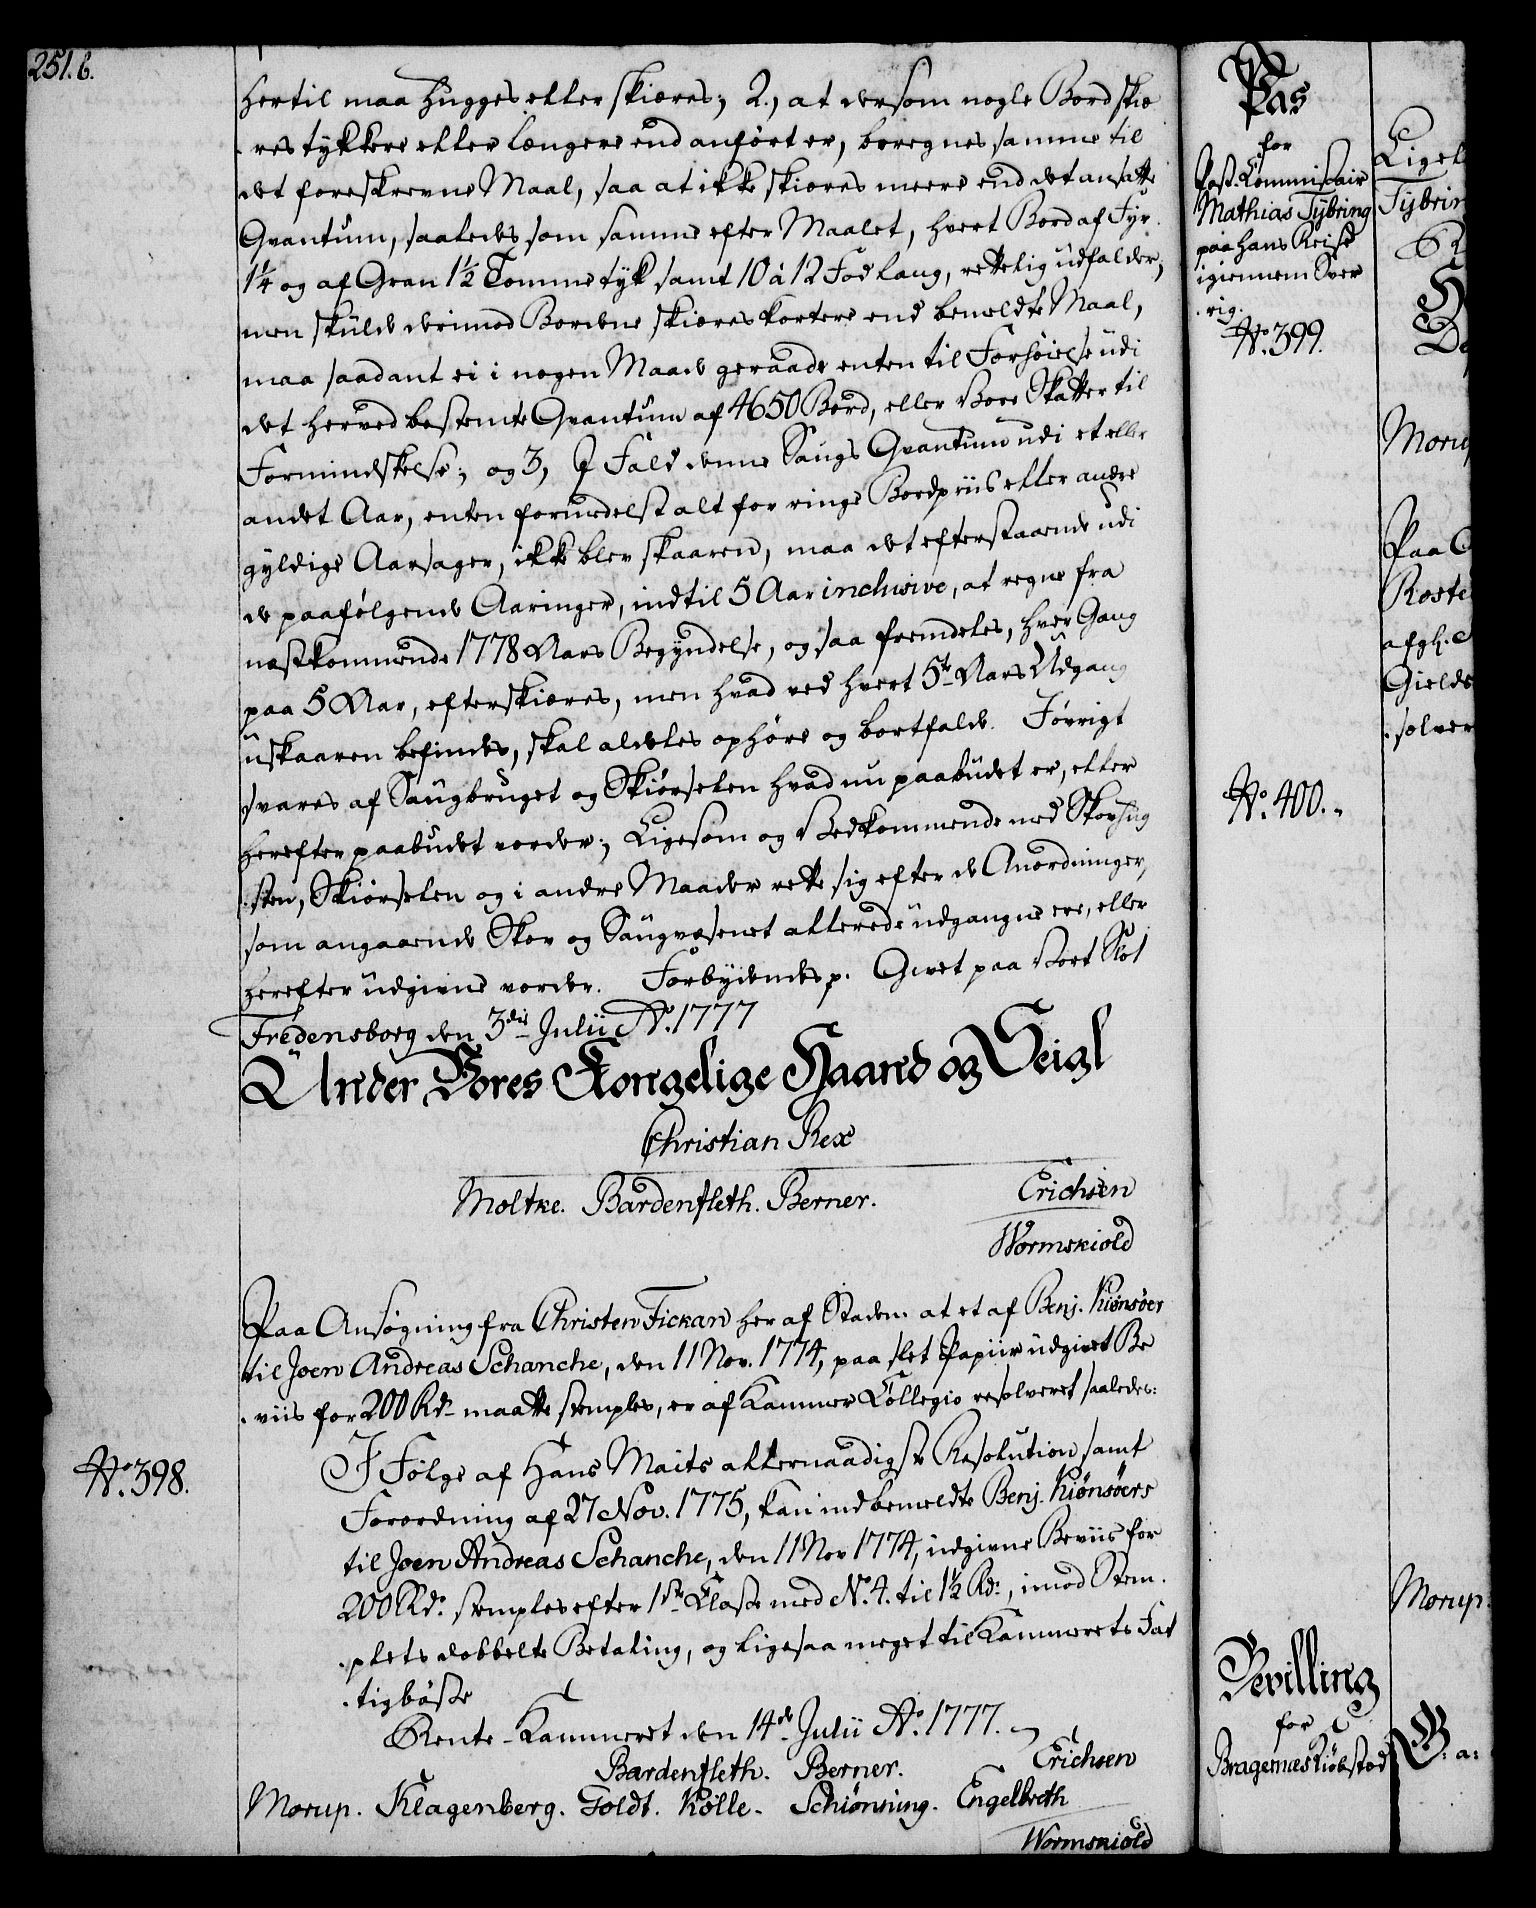 251.b.
hertil maa hugges eller skiæres; 2., at dersom nogle Bord skiæ
-res tykkere eller længere end anført er, beregnes samme til
det foreskrevne Maal, saa at ikke skiæres meere end det ansatte
Qvantum, saaledes som samme efter Maalet, hvert Bord af Fyr
1¼ og af Gran 1½ Tomme tyk samt 10 á 12 Fod lang, rettelig udfalder;
men skulde derimod Bordene skiæres kortere end bemeldte Maal,
maa saadant ei i nogen Maade geraade enten til Forhøielse udi
det herved bestemte Qvantum af 4650 Bord, eller Vore Skatter til
Formindskelse; og 3, I Fald denne Saugs Qvantum udi et eller
andet Aar, enten formedelst alt for ringe Bordpriis eller andre
gyldige Aarsager, ikke blev skaaren, maa det efterstaaende udi
de paafølgende Aaringer, indtil 5 Aar inclusive, at regne fra
næstkommende 1778 Aars Begyndelse, og saa fremdeles, hver Gang
paa 5 Aar, efterskiæres, men hvad ved hvert 5te Aars Udgang
uskaaren befindes, skal aldeles ophøre og bortfalde. Iøvrigt
svares af Saugbruget og Skiørselen hvad nu paabudet er, eller
herefter paabudet vorder; Ligesom og Vedkommende med Skovhug
-sten, Skiørselen og i andre Maader rette sig efter de Anordninger,
som angaaende Skov og Saugvæsenet allerede udgangne ere, eller
herefter udgivne vorder. Forbydendes p. Givet paa Vort Slot
Fredensborg den 3die Julii Ao. 1777
Under Vores Kongelige Haand og Seigl
Christian Rex
Moltke. Bardenfleth. Berner. Erichsen
Wormskiold
Paa Ansøgning fra Christen Fickan her af Staden at et af Benj. Kiønsøer
til Joen Andreas Schanche, den 11 Nov. 1774, paa slet Papiir udgivet Be
-viis for 200 Rdr maatte stemples, er af Kammer Collegio resolveret saaledes:
No. 398.
I Følge af Hans Maits allernaadigste Resolution samt
Forordning af 27 Nov. 1775, kan indbemeldte Benj. Kiønsøers
til Joen Andreas Schanche, den 11 Nov 1774, udgivne Beviis for
200 Rdr. stemples efter 1ste Classe med No. 4. til 1½ Rdr., imod Stem
-plets dobbelte Betaling, og ligesaa meget til Kammerets Fat
-tigbøsse
Rente-Kammeret den 14de Julii Ao. 1777.
Bardenfleth. Berner. Erichsen
Morup. Klagenberg. Foldt. Kølle. Schiønning. Engelbreth
Wormskiold
Pas
for
Post-Commissair
Mathias Tybring
paa hans Reise
igiennem Sver
-rig.
No. 399.
No. 400.
Bevilling
for
Bragernæs Kiøbstad
Tybrin
Moru
Paa
Roste
afgh.
Gields
-solver
Morup.